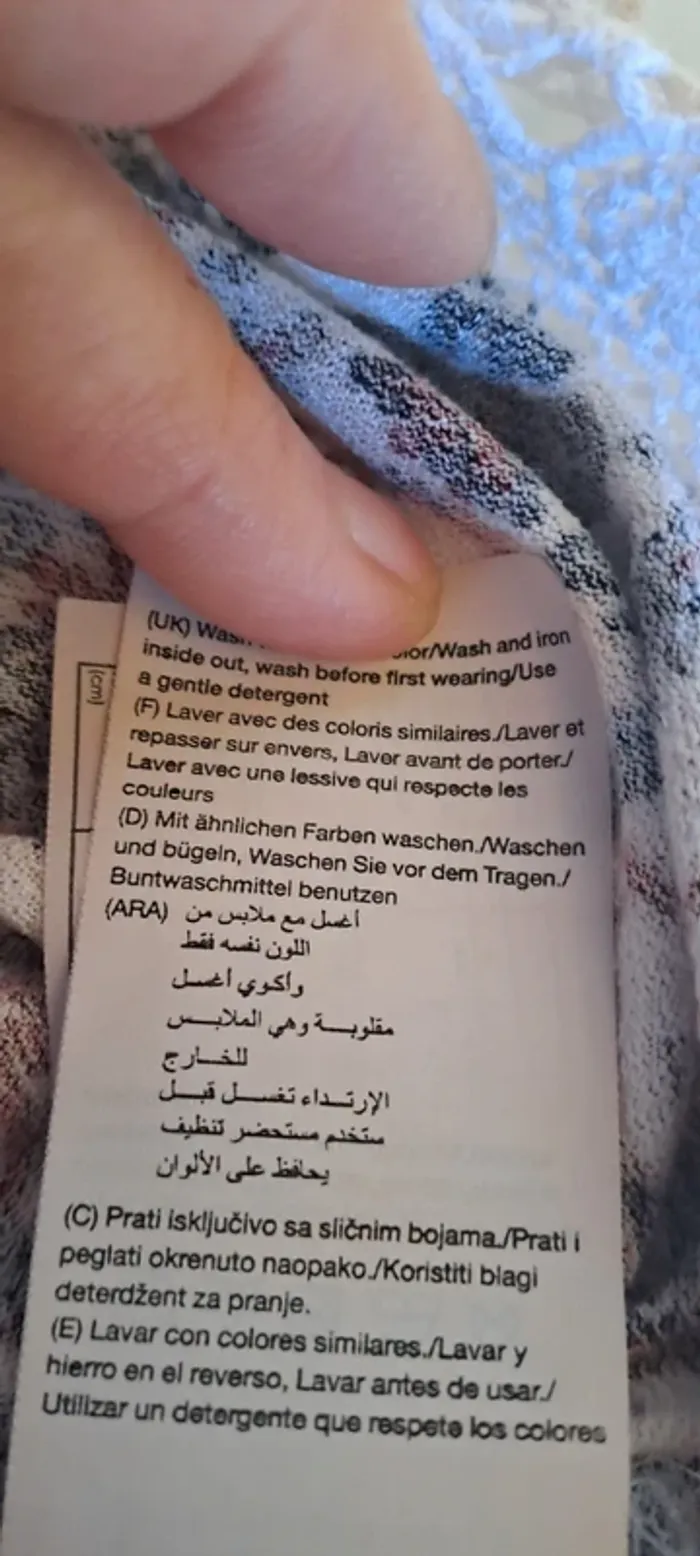 (UK) Wash olor/Wash and iron
inside out, wash before first wearing/Use
a gentle detergent
(F) Laver avec des coloris similaires./Laver et
repasser sur envers, Laver avant de porter./
Laver avec une lessive qui respecte les
couleurs
(D) Mit ähnlichen Farben waschen./Waschen
und bügeln, Waschen Sie vor dem Tragen./
Buntwaschmittel benutzen
(ARA) أغسل مع ملابس من
اللون نفسه فقط
وأكوي أغســل
مقلوبــــة وهي الملابــس
للخــارج
الإرتــداء تغســـل قبــل
ستخدم مستحضر تنظيف
يحافظ على الألوان
(C) Prati isključivo sa sličnim bojama./Prati i
peglati okrenuto naopako./Koristiti blagi
deterdžent za pranje.
(E) Lavar con colores similares./Lavar y
hierro en el reverso, Lavar antes de usar./
Utilizar un detergente que respete los colores
[cm]